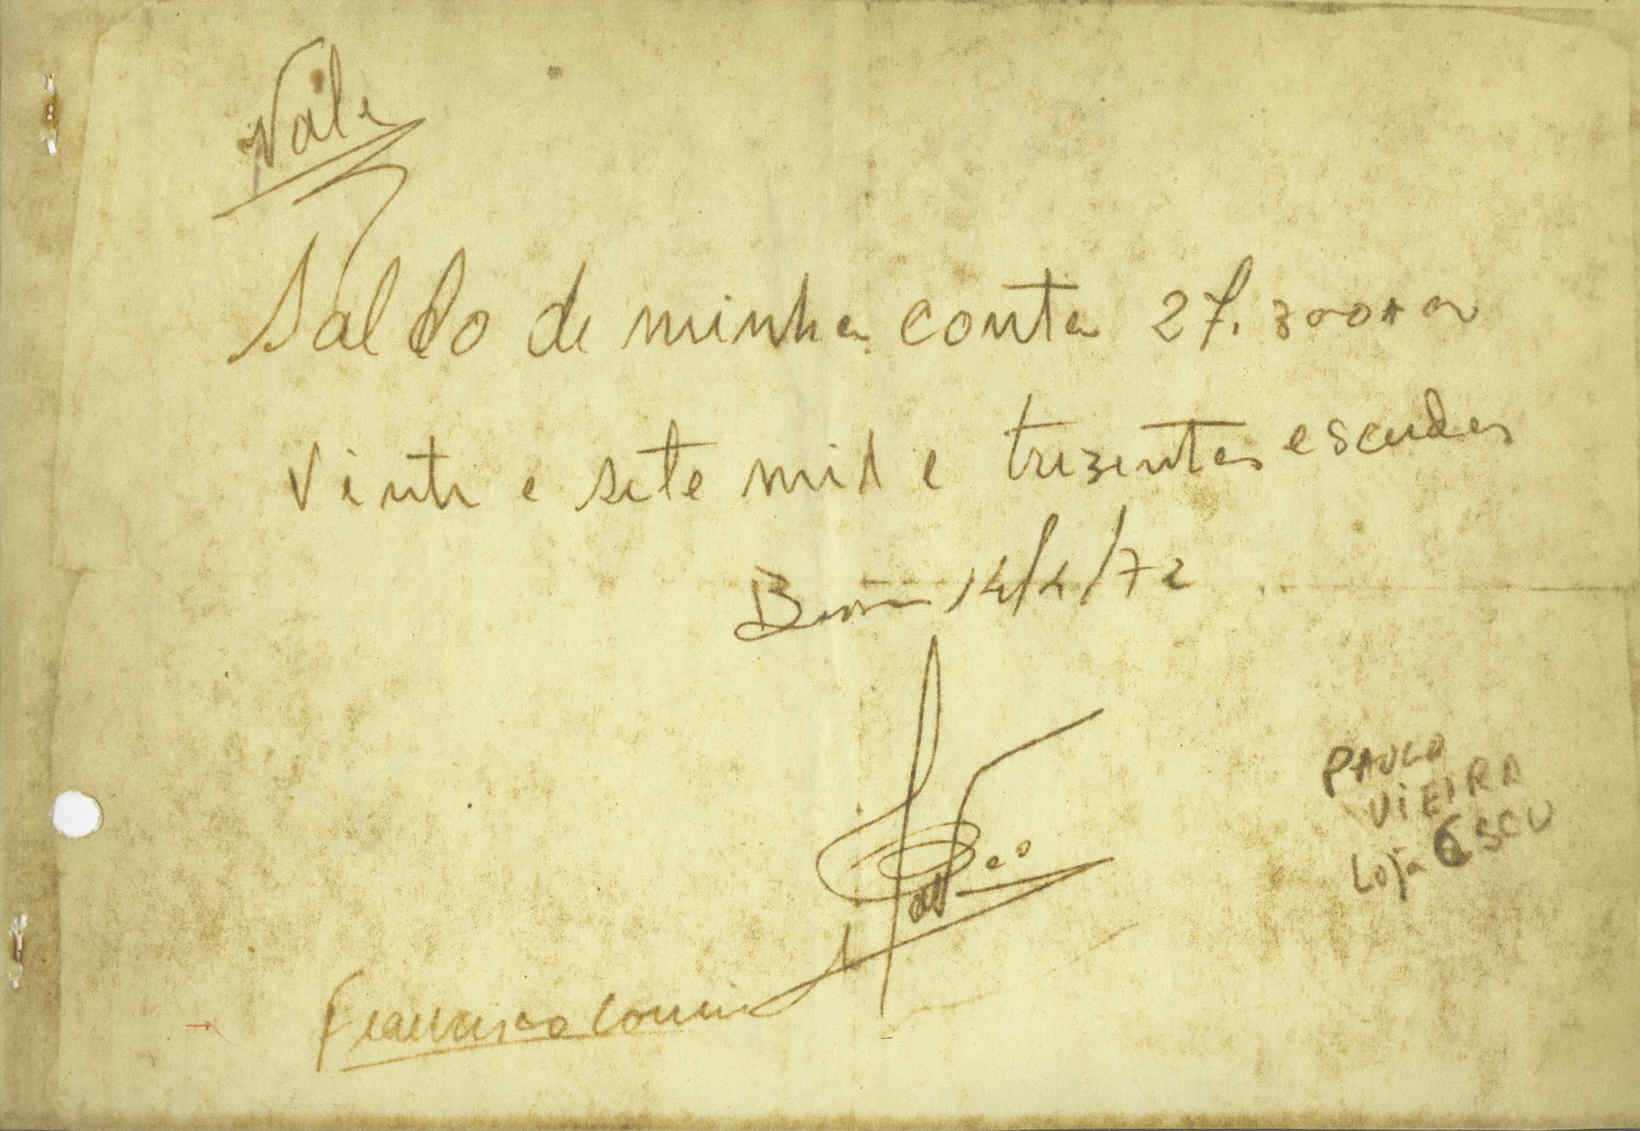 Vale
Saldo de minha conta 27.300$00
Vinte e sete mil e trezentos escudos
Bissau 14/4/72
PAULO
VIEIRA
Loja ESCU
Francisco Correia